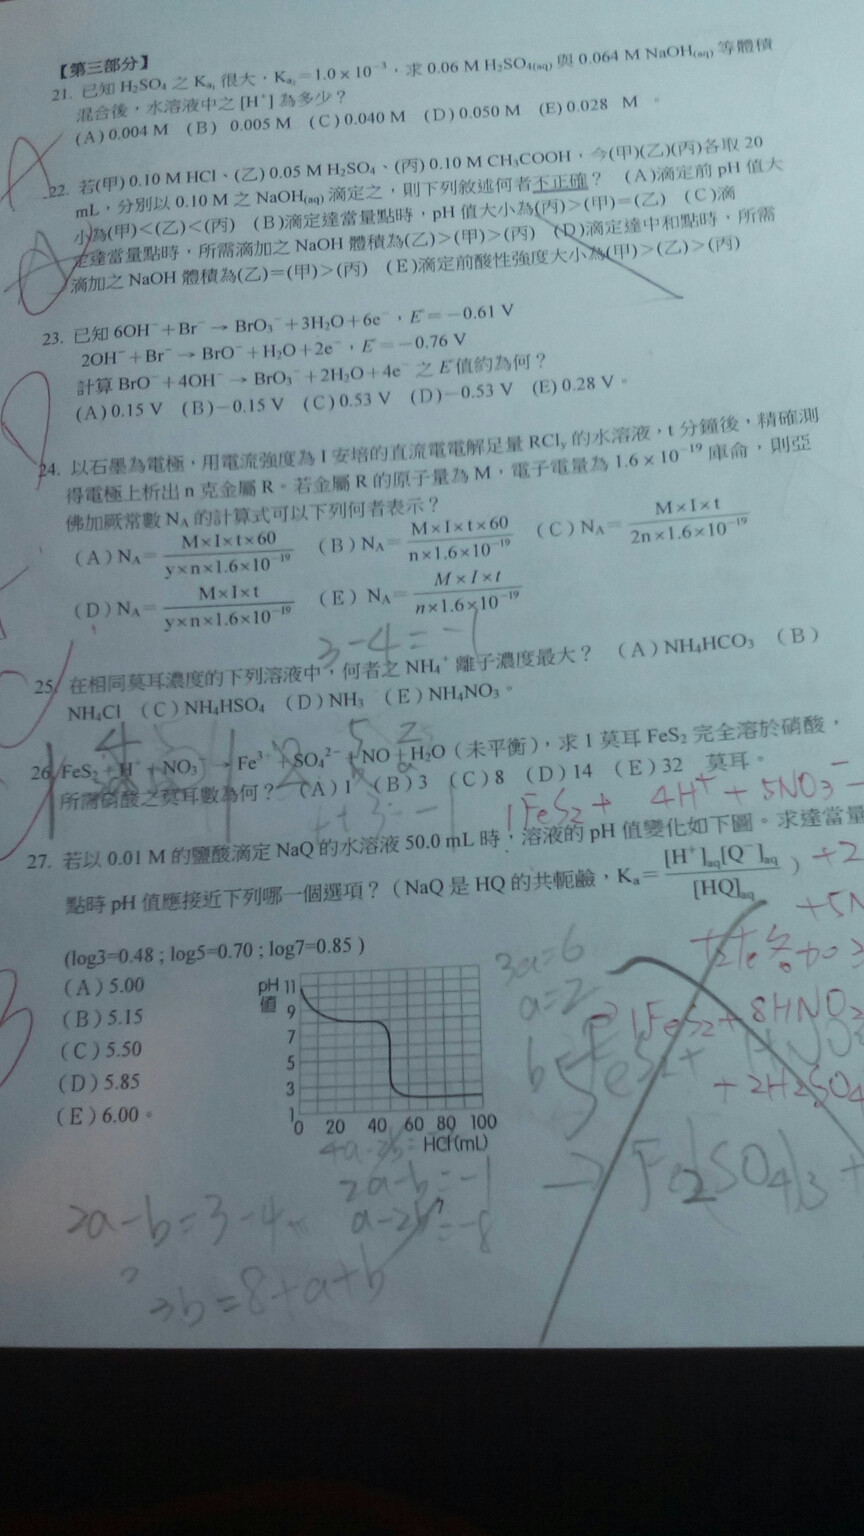 【第三部分】
21. 已知 H₂SO₄ 之 Kₐ₁ 很大，Kₐ₂=1.0×10⁻³，求 0.06 M H₂SO₄₍ₐq₎ 與 0.064 M NaOH₍ₐq₎ 等體積
混合後，水溶液中之 [H⁺] 為多少？
(A) 0.004 M (B) 0.005 M (C) 0.040 M (D) 0.050 M (E) 0.028 M 。
22. 若(甲) 0.10 M HCl、(乙) 0.05 M H₂SO₄、(丙) 0.10 M CH₃COOH，今(甲)(乙)(丙)各取 20
mL，分別以 0.10 M 之 NaOH₍ₐq₎ 滴定之，則下列敘述何者不正確？ (A)滴定前 pH 值大
小為(甲)<(乙)<(丙) (B)滴定達當量點時，pH 值大小為(丙)>(甲)=(乙) (C)滴
定達當量點時，所需滴加之 NaOH 體積為(乙)>(甲)>(丙) (D)滴定達中和點時，所需
滴加之 NaOH 體積為(乙)=(甲)>(丙) (E)滴定前酸性強度大小為(甲)>(乙)>(丙)
23. 已知 6OH⁻+Br⁻→BrO₃⁻+3H₂O+6e⁻，E=−0.61 V
2OH⁻+Br⁻→BrO⁻+H₂O+2e⁻，E=−0.76 V
計算 BrO⁻+4OH⁻→BrO₃⁻+2H₂O+4e⁻ 之 E 值約為何？
(A) 0.15 V (B)−0.15 V (C) 0.53 V (D)−0.53 V (E) 0.28 V 。
24. 以石墨為電極，用電流強度為 I 安培的直流電電解足量 RClᵧ 的水溶液，t 分鐘後，精確測
得電極上析出 n 克金屬 R。若金屬 R 的原子量為 M，電子電量為 1.6×10⁻¹⁹ 庫侖，則亞
佛加厥常數 N_A 的計算式可以下列何者表示？
(A) N_A=M×I×t×60/y×n×1.6×10⁻¹⁹ (B) N_A=M×I×t×60/n×1.6×10⁻¹⁹ (C) N_A=M×I×t/2n×1.6×10⁻¹⁹
(D) N_A=M×I×t/y×n×1.6×10⁻¹⁹ (E) N_A=M×I×t/n×1.6×10⁻¹⁹
3-4=-1
25. 在相同莫耳濃度的下列溶液中，何者之 NH₄⁺ 離子濃度最大？ (A) NH₄HCO₃ (B)
NH₄Cl (C) NH₄HSO₄ (D) NH₃ (E) NH₄NO₃。
26. FeS₂+H⁺+NO₃⁻→Fe³⁺+SO₄²⁻+NO+H₂O（未平衡），求 1 莫耳 FeS₂ 完全溶於硝酸，
所需硝酸之莫耳數為何？ (A) 1 (B) 3 (C) 8 (D) 14 (E) 32 莫耳。
1FeS₂+ 4H⁺+5NO₃⁻
27. 若以 0.01 M 的鹽酸滴定 NaQ 的水溶液 50.0 mL 時，溶液的 pH 值變化如下圖。求達當量
點時 pH 值應接近下列哪一個選項？（NaQ 是 HQ 的共軛鹼，Kₐ=[H⁺]ₐq[Q⁻]ₐq/[HQ]ₐq）
(log3=0.48 ; log5=0.70 ; log7=0.85 )
(A) 5.00
(B) 5.15
(C) 5.50
(D) 5.85
(E) 6.00。
pH值
11
9
7
5
3
1
0 20 40 60 80 100
HCl(mL)
3a=6
a=2
2a-b=-1
a-2b=-8
2a-b=3-4
2b=8+a+b